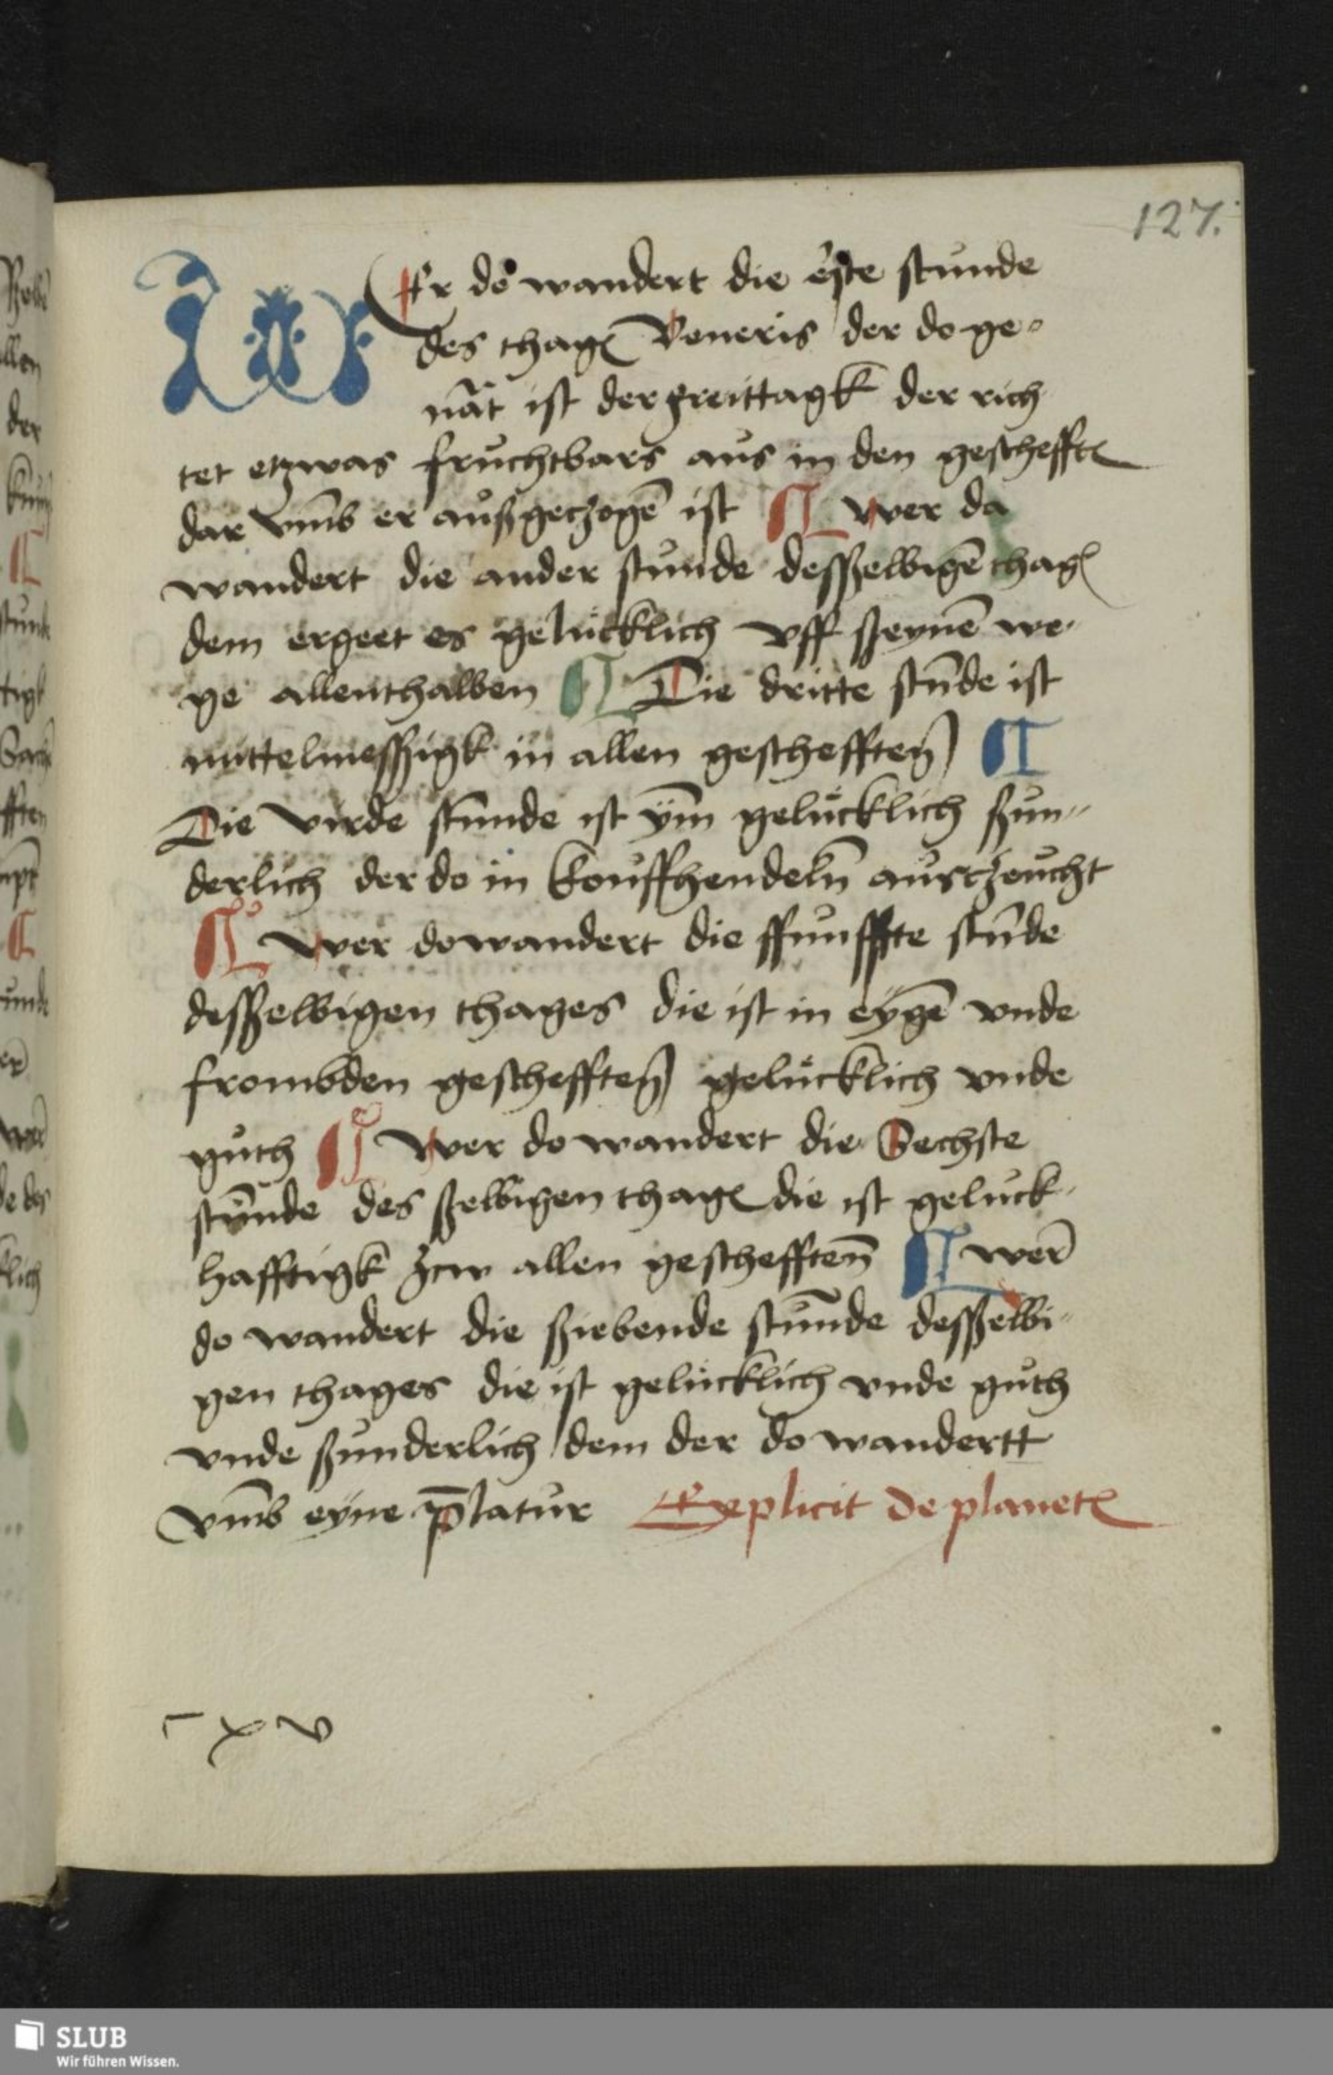 127.
WEr do wandert die erste stunde
des thagꝭ Veneris der do ge-
nāt ist der freittagk der rich
tet etzwas fruchtbars aus in den geschefftꝭ
dar vm̄b er außgeczogē ist ¶ wer da
wandert die ander stunde desßelbigē thagꝭ
dem ergeet es gelucklich vff ßeynē we-
ge allenthalben ¶ Die dritte stūde ist
mittelmessigk in allen geschefften̄ ¶
Die virde stunde ist ym̄ gelucklich ßun-
derlich der do in kouffhendeln̄ ausczeucht
¶ wer do wandert die ffunffte stūde
desßelbigen thages die ist in eygē vnde
frombden geschefften̄ gelucklich vnde
guth ¶ Wer do wandert die Sechste
stunde des ßelbigen thagꝭ die ist geluck-
hafftigk zcw allen geschefften̄ ¶ wer̄
do wandert die ßiebende stun̄de desßelbi-
gen thages die ist gelucklich vnde guth
vnde ßunderlich dem der do wandertt
vm̄b eyne p̄latur Explicit de planetꝭ
SLUB
Wir führen Wissen.